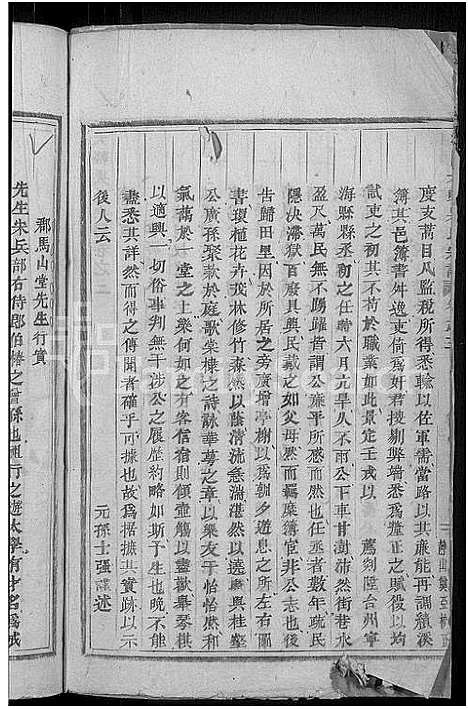 度支萬目凡監稅所得悉輸以佐軍需當路以其廉能再調績溪
簿其邑簿書舛逸吏倚為奸君搜剔弊端悉為釐正之賦役以均
試吏之初為不苟於職業多此類景定壬戌以 薦剡陞台州寧
海縣縣丞初之任時六月亢旱久不雨公下車甘澍沛然街巷水
盈尺萬民踴躍皆謂公廉平所感而然也任丞者數年疏民
隱決滯獄百廢具興民戴之如父母然而緼麋簿官非公志也後
告歸田里因於所居之旁廣增亭榭以為朝夕遊息之所左右圖
書環植花卉茂林修竹森然以蔭清流懸湍湛然以遶處與桂壑
公廣孫宋敘於庭歌棠棣之詩詠華萼之章以樂友于怡怡然和
氣藹於一堂之上樂何如之有客信宿則傾壺觴以盡歡舉琴棋
以適興一切俗事判無干涉公之履歷約略如斯予生也晚不能
盡悉其詳然而得之傳聞者確乎可據也故為摭其實跡以示
後人云 元孫士强謹述
郡馬山堂先生行實
先生宋兵部右侍郎伯椿之曾孫也 行之遊太學有才名為咸